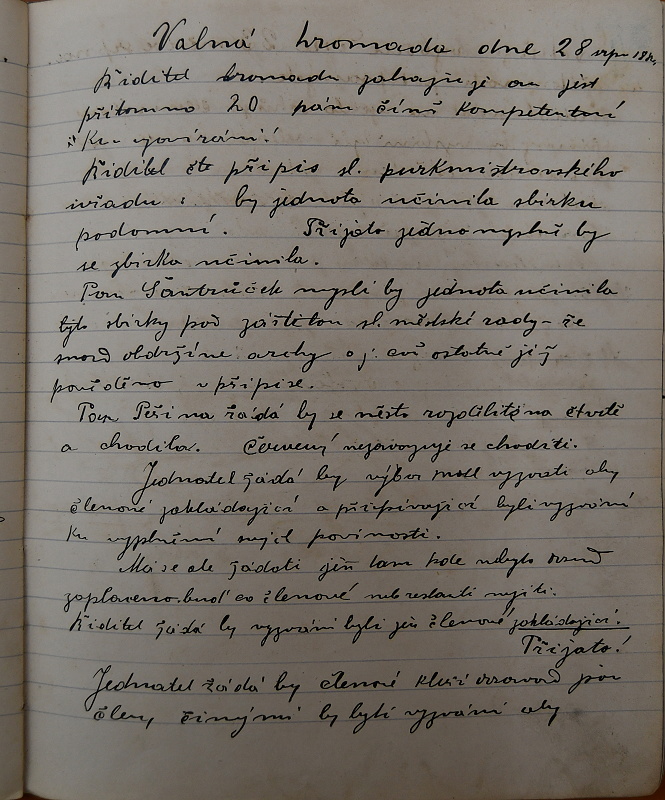 Valná hromada dne 28 srpn
Řiditel hromadu zahajuje an jest
přítomno 20 pánů činů kompetentní
Ku usnášení!
Řiditel čte přípis sl. purkmistrovského
úřadu : by jednota učinila sbírku
podomní. Přijato jednomyslně by
se zbírka učinila.
Pan Šantrůček myslí by jednota učinila
tyto sbírky pod záštitou sl. městské rady - že
snad obdržíme archy a j. což ostatně již
pověděno v přípise.
Pan Peřina žádá by se město rozdělilo na čtvrtě
a chodila. Červený nezavazuje se choditi.
Jednatel žádá by výbor měl vyzvati aby
členové zakládající a přispívající byli vyzváni
Ku vyplnění svých povinností.
Má se ale žádati jen tam kde nebylo snad
zaplaceno. buď co členové neb restanti nejsti.
Řiditel žádá by vyzváni byli jen členové zakládající.
Přijato!
Jednatel žádá by členové kteří jsou
členy činnými by byli vyzváni aby